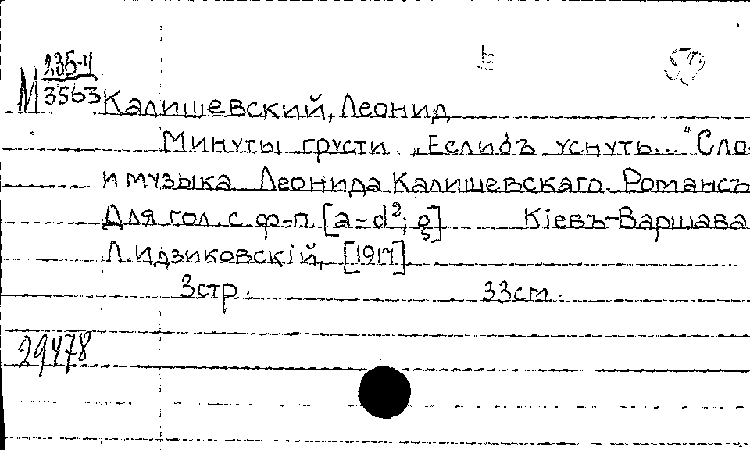 М 235-4
3563
Калишевский, Леонид
Минуты грусти „Еслибъ уснуть..." Сло
и музыка Леонида Калишевскаго. Романсъ
Для гол. с ф-п. [a-d²; g] Кіевъ-Варшава
Л. Идзиковскій, [1917].
3 стр. 33 см.
29478